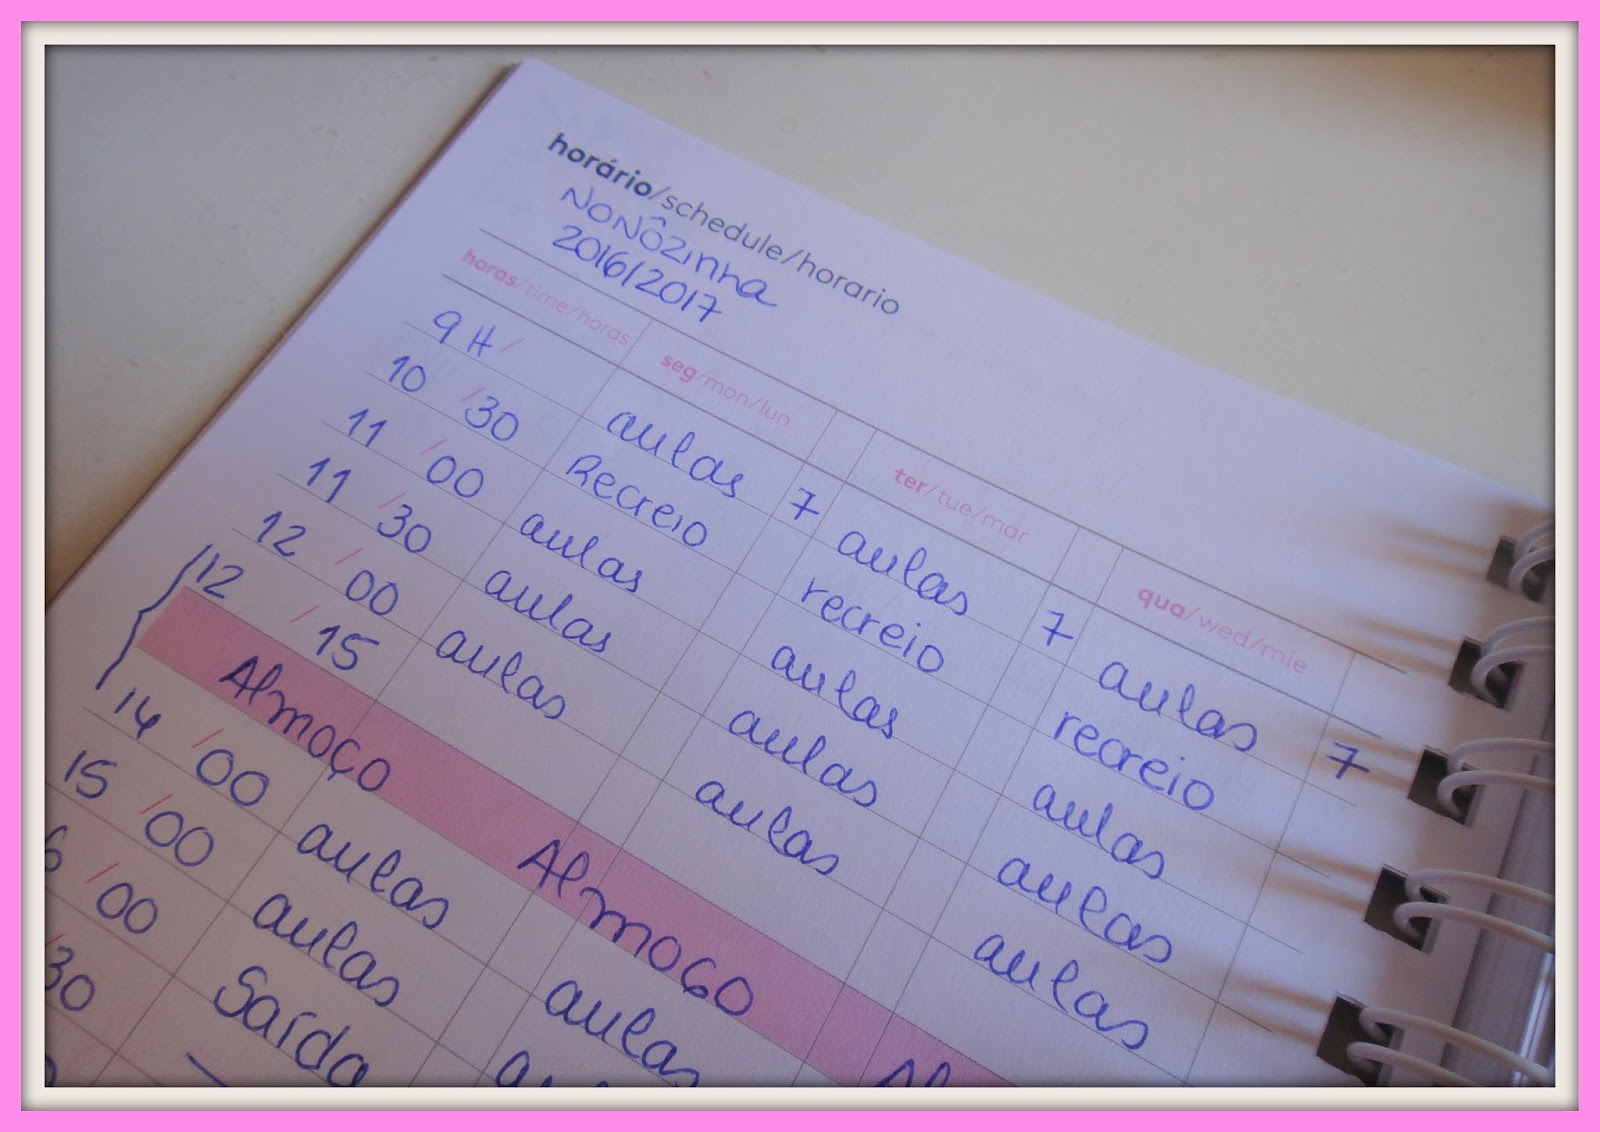 horário/schedule/horario
NONÔZinha
2016/2017
horas/time/horas seg/mon/lun ter/tue/mar qua/wed/mie
9 H/ aulas 7 aulas 7 aulas 7
10 /30 Recreio recreio recreio
11 /00 aulas aulas aulas
11 /30 aulas aulas aulas
12 /00 aulas aulas aulas
12 /15 Almoço Almoço Al
14 /00 aulas aulas
15 /00 aulas
6 /00 Saída
/30